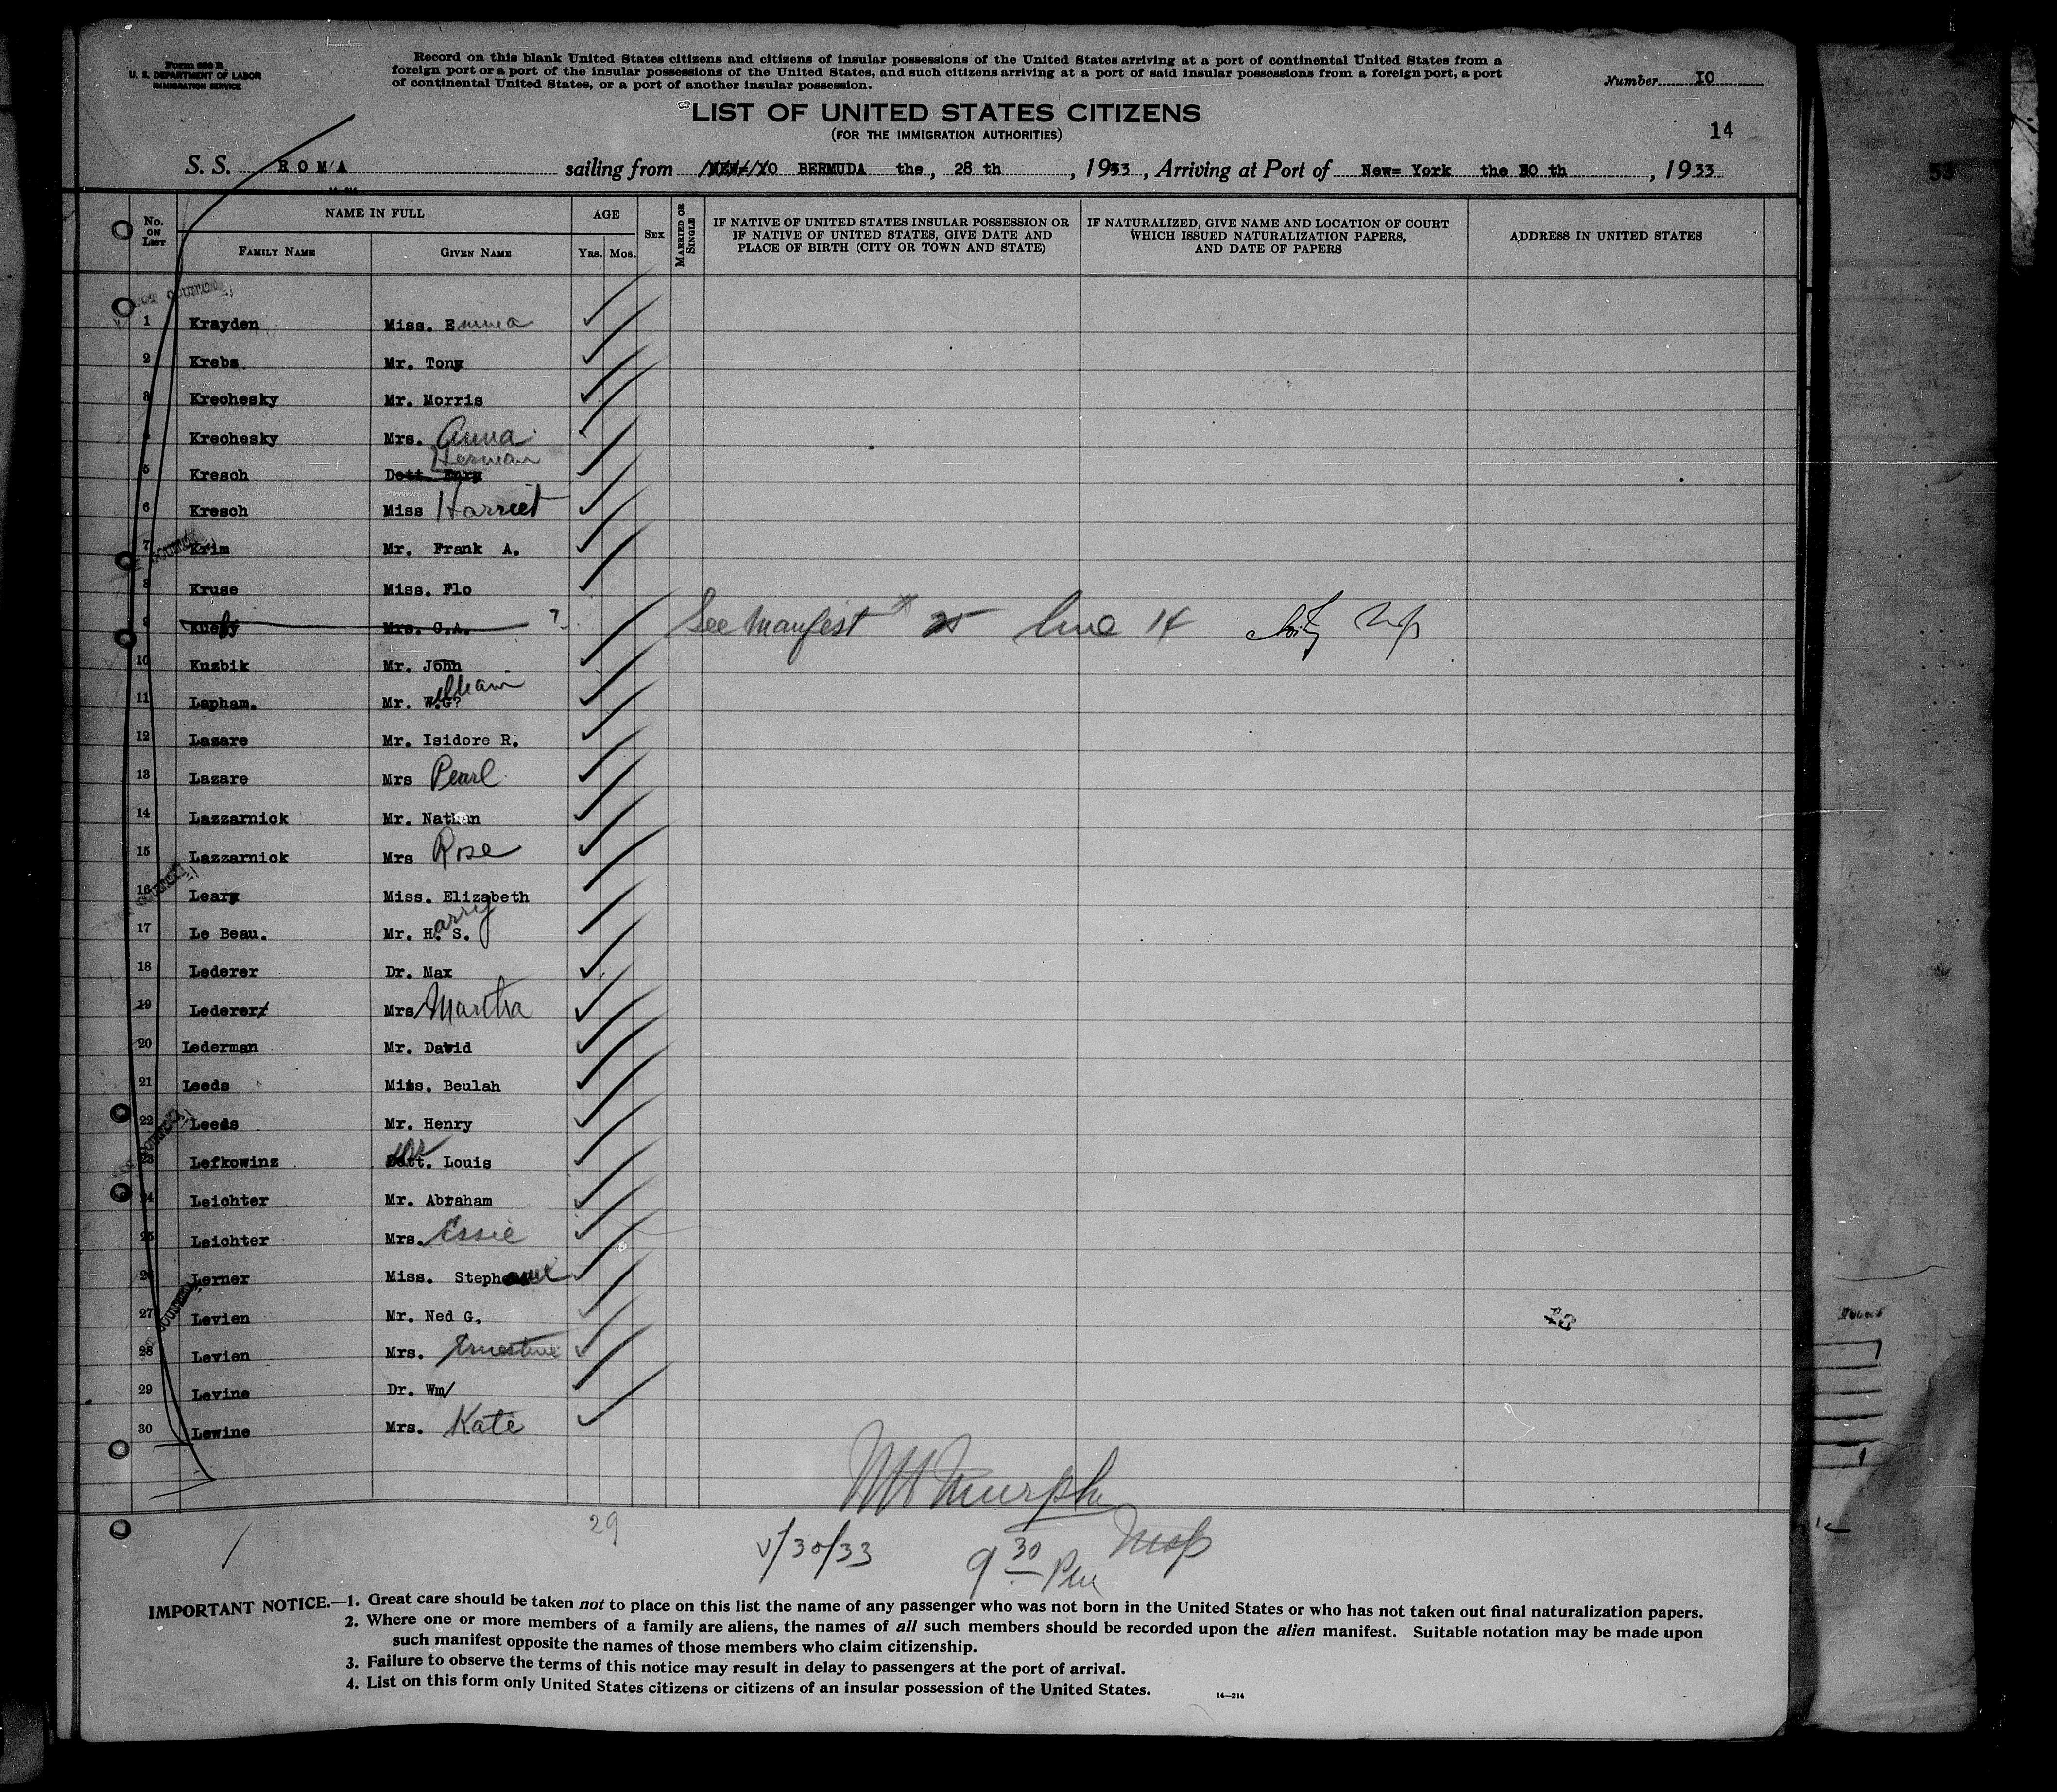 Form 630 B
U. S. DEPARTMENT OF LABOR
IMMIGRATION SERVICE
Record on this blank United States citizens and citizens of insular possessions of the United States arriving at a port of continental United States from a
foreign port or a port of the insular possessions of the United States, and such citizens arriving at a port of said insular possessions from a foreign port, a port
of continental United States, or a port of another insular possession.
Number 10
LIST OF UNITED STATES CITIZENS
(FOR THE IMMIGRATION AUTHORITIES)
14
S. S. ROMA sailing from BERMUDA the, 28 th, 1933, Arriving at Port of New= York the 30 th, 1933
No. ON LIST NAME IN FULL AGE SEX MARRIED OR SINGLE IF NATIVE OF UNITED STATES INSULAR POSSESSION OR IF NATIVE OF UNITED STATES, GIVE DATE AND PLACE OF BIRTH (CITY OR TOWN AND STATE) IF NATURALIZED, GIVE NAME AND LOCATION OF COURT WHICH ISSUED NATURALIZATION PAPERS, AND DATE OF PAPERS ADDRESS IN UNITED STATES
FAMILY NAME GIVEN NAME YRS. MOS.
1 Krayden Miss. Emma
2 Krebs Mr. Tony
3 Krechesky Mr. Morris
4 Krechesky Mrs. Anna
5 Kresch Herman
6 Kresch Miss Harriet
7 Krim Mr. Frank A.
8 Kruse Miss. Flo
9 Mrs. C.A. ? See Manifest # 25 line 14
10 Kuzbik Mr. John
11 Lapham. Mr. William
12 Lazare Mr. Isidore R.
13 Lazare Mrs Pearl
14 Lazzarnick Mr. Nathan
15 Lazzarnick Mrs Rose
16 Leary Miss. Elizabeth
17 Le Beau. Mr. Harry S.
18 Lederer Dr. Max
19 Lederer Mrs Martha
20 Lederman Mr. David
21 Leeds Miss. Beulah
22 Leeds Mr. Henry
23 Lefkowinz Dr. Louis
24 Leichter Mr. Abraham
25 Leichter Mrs. Essie
26 Lerner Miss. Stephanie
27 Levien Mr. Ned G.
28 Levien Mrs. Ernestine
29 Levine Dr. Wm/
30 Lewine Mrs. Kate
29
V/30/33
9 30 Pm
IMPORTANT NOTICE.—1. Great care should be taken not to place on this list the name of any passenger who was not born in the United States or who has not taken out final naturalization papers.
2. Where one or more members of a family are aliens, the names of all such members should be recorded upon the alien manifest. Suitable notation may be made upon
such manifest opposite the names of those members who claim citizenship.
3. Failure to observe the terms of this notice may result in delay to passengers at the port of arrival.
4. List on this form only United States citizens or citizens of an insular possession of the United States.
14—214